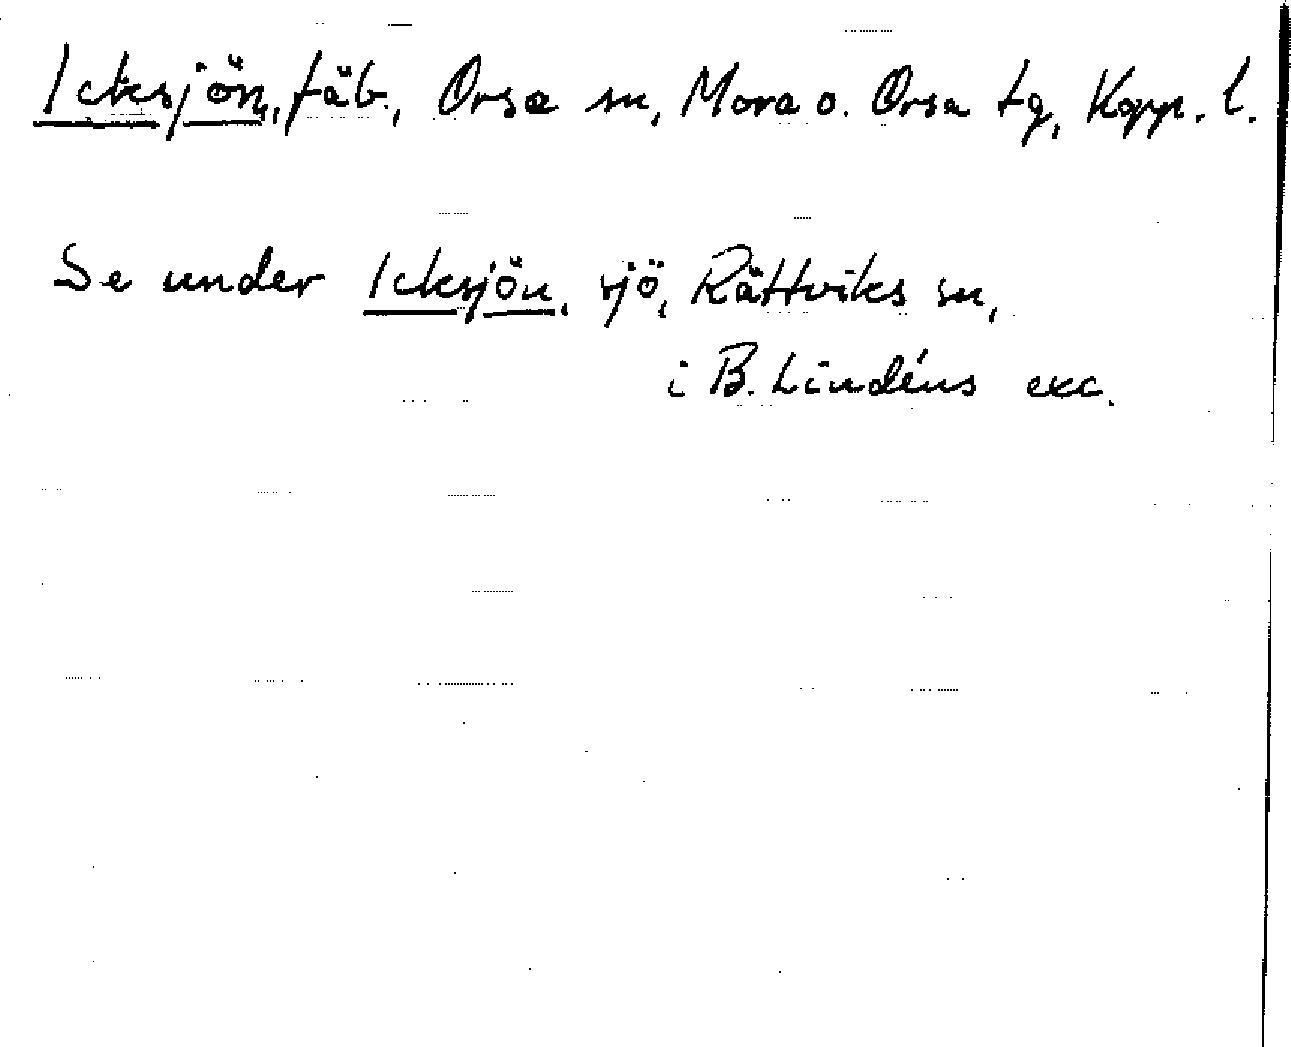 Icksjön, fäb., Orsa sn, Mora o. Orsa tg, Kopp. l.
Se under Icksjön, sjö, Rättviks sn,
i B. Lindéns exc.